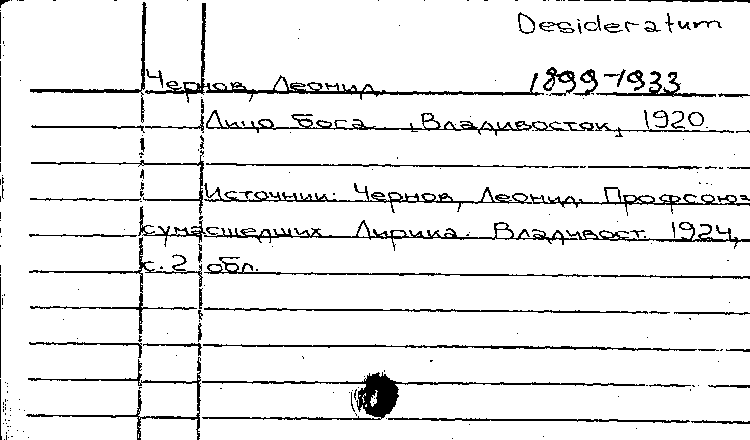 Desideratum
Чернов, Леонид. 1899-1933
Лицо Бога. , Владивосток, 1920.
Источник: Чернов, Леонид. Профсоюз
сумасшедших. Лирика. Владивост. 1924,
с. 2 обл.